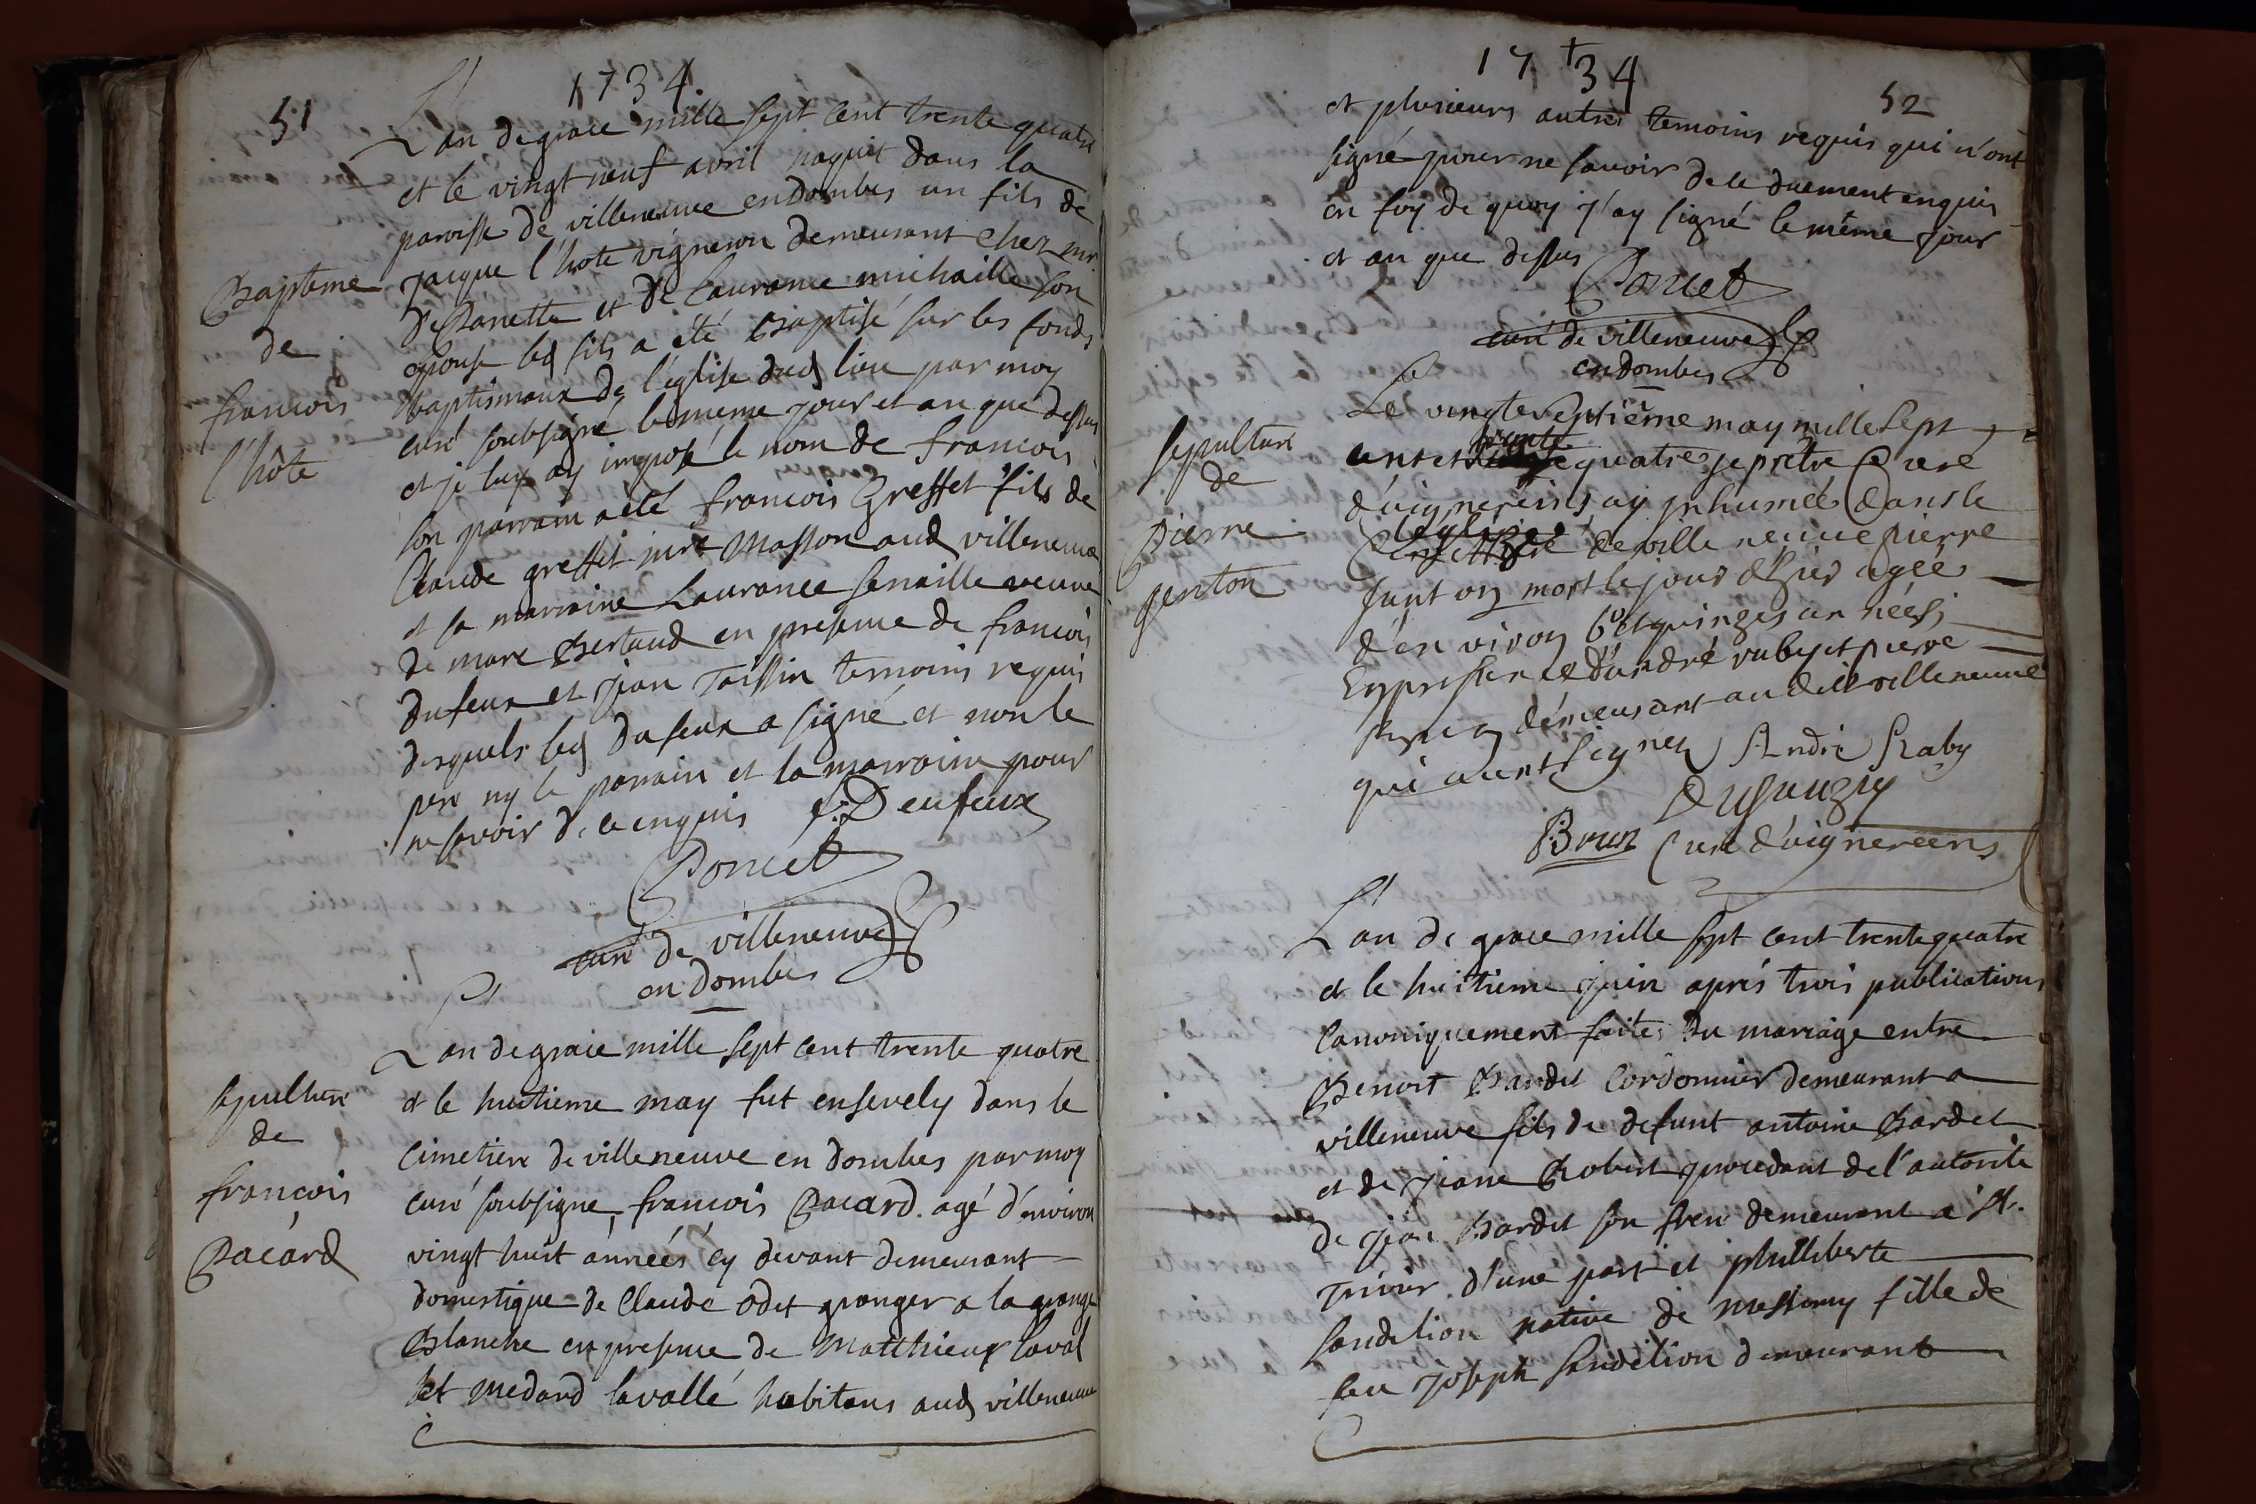 1734.
51
L'an de grace mille sept cent trente quatre
et le vingt neuf avril naquit dans la
paroisse de villeneuve en dombes un fils de
jacque l'hote vigneron demeurant chez mr.
de et de laurance michaille son
epouse led fils a été baptisé sur les fonds
baptismaux de l'église dud lieu par moy
curé soubsigné le meme jour et an que dessus
et je luy ay imposé le nom de francois
son parrain a été francois Greffet fils de
Claude greffet mre Masson aud villeneuve
et sa marraine Laurance senaille veuve
de marc Bertaud en presence de francois
dufeux et jean Taissin temoins requis
desquels led dufeux a signé et non le
pere ny le parrain et la marraine pour
ne savoir de ce enquis f: Deufeux
Poncet
curé de villeneuve
en dombes
Bapteme
de
francois
l'hôte
L'an de grace mille sept cent trente quatre
et le huitieme may fut ensevely dans le
cimetiere de villeneuve en dombes par moy
curé soubsigné, francois Pacard agé d'environ
vingt huit années cy devant demeurant
domestique de Claude odet granger a la grange
Blanche en presence de Matthieux laval
et medard lavallé habitans aud villeneuve
sepulture
de
francois
Pacard
1734
52
et plusieurs autres temoins requis qui n'ont
signé pour ne savoir de ce duement enquis
en foy de quoy j'ay signé le même jour
et an que dessus
Poncet
curé de villeneuve
en dombes
Le vingte septième may mille sept
cent et trente quatre je prêtre Curé
d'aignereins ay inhumée dans le
leglize
Cemettiere de ville neuve pierre
Junton mort le jour d'hier agée
d'environ quinzes années
En presence d'andré raby et pierre
demeurant au dit villeneuve
qui aunt signez André Raby
Dusauzey
Brun Curé d'aignereins
sepulture
de
pierre
genton
L'an de grace mille sept cent trente quatre
et le huitieme juin aprés trois publications
canoniquement faites du mariage entre
Benoit Bardet Cordonnier demeurant a
villeneuve fils de defunt antoine Bardet
et de jeane Robert procedant de l'autorité
de jean Bardet son frere demeurant a st.
Trivier d'une part et philliberte
sandelion native de messimy fille de
feu joseph sandelion demeurant